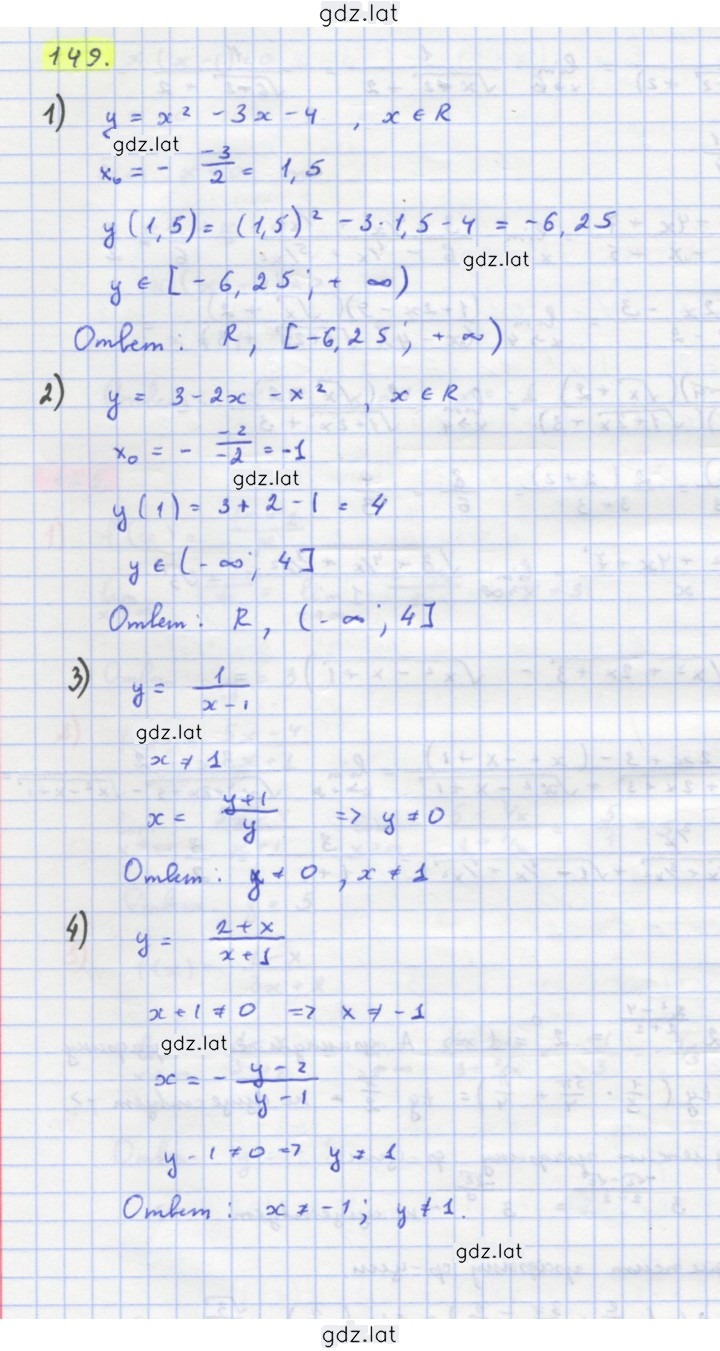 gdz.lat
149.
1) y = x² - 3x - 4 , x ∈ R
gdz.lat
x₀ = - -3/2 = 1,5
y(1,5) = (1,5)² - 3·1,5 - 4 = -6,25
gdz.lat
y ∈ [-6,25; +∞)
Ответ: R, [-6,25; +∞)
2) y = 3 - 2x - x² , x ∈ R
x₀ = - -2/-2 = -1
gdz.lat
y(1) = 3 + 2 - 1 = 4
y ∈ (-∞; 4]
Ответ: R, (-∞; 4]
3) y = 1/(x-1)
gdz.lat
x ≠ 1
x = (y+1)/y => y ≠ 0
Ответ: y ≠ 0, x ≠ 1
4) y = (2+x)/(x+1)
x + 1 ≠ 0 => x ≠ -1
gdz.lat
x = - (y-2)/(y-1)
y - 1 ≠ 0 => y ≠ 1
Ответ: x ≠ -1; y ≠ 1.
gdz.lat
gdz.lat